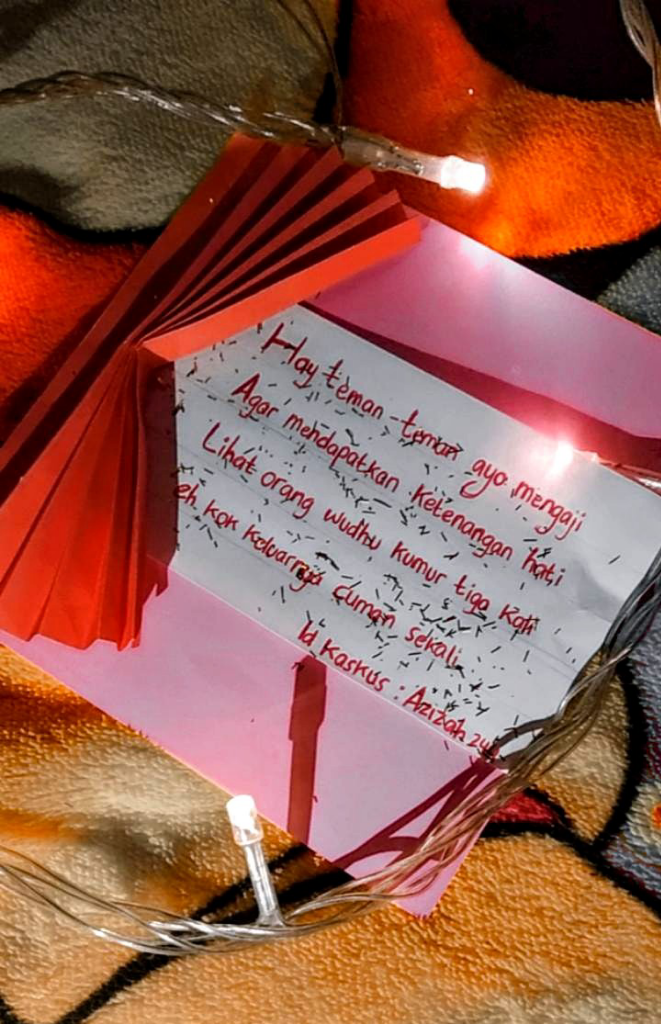 Hay teman-teman ayo mengaji
Agar mendapatkan ketenangan hati
Lihat orang wudhu kumur tiga kali
eh kok keluarnya cuman sekali
Id Kaskus : Azizah